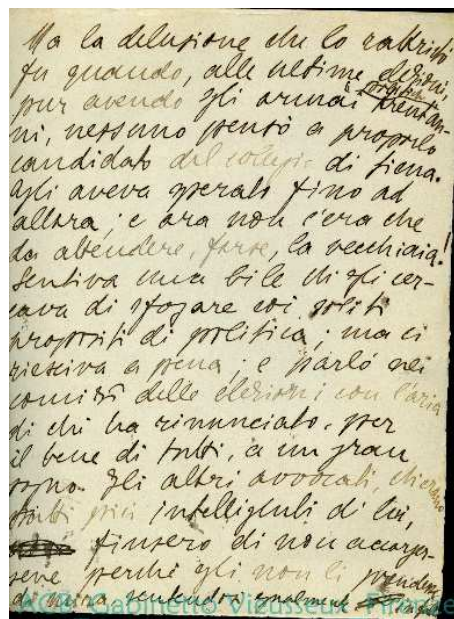 Ma la delusione che lo rattristò
fu quando, alle ultime elezioni,
pur avendo egli ormai trentan-
ni, nessuno pensò a proporlo
candidato del collegio di Siena.
Egli aveva sperato fino ad
allora; e ora non c'era che
da attendere, forse, la vecchiaia!
Sentiva una bile ch'egli cer-
cava di sfogare coi soliti
propositi di politica; ma ci
riesciva a pena; e parlò nei
comizi delle elezioni con l'aria
di chi ha rinunciato, per
il bene di tutti, a un gran
sogno. Gli altri avvocati, ch'erano
tutti più intelligenti di lui,
finsero di non accorger-
sene perché egli non li prendesse
di mira sentendosi egualmente
ACB Gabinetto Vieusseux Firenze